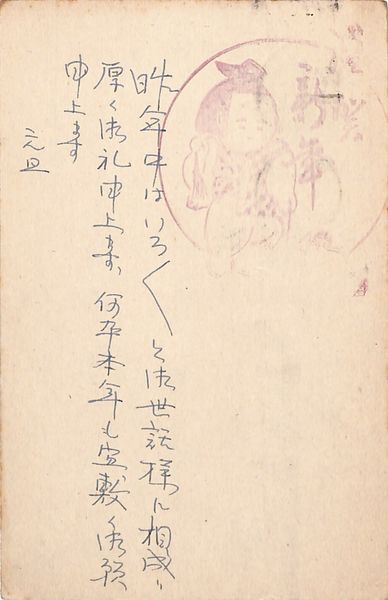 謹賀新年
昨年中はいろ〱と御世話様に相成り
厚く御礼申上ます、何卒本年も宜敷御願
申上ます
元旦